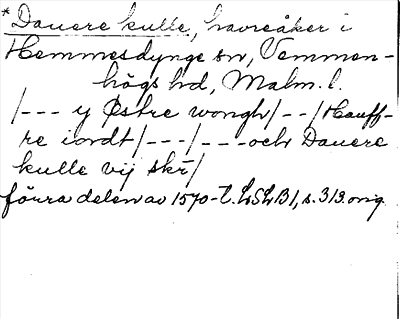 *Dauere kulle, havreåker i
Hemmesdynge sn, Vemmen-
högs hd, Malm. l.
/--- y Østre wongh/--/Hauff-
re iordt/---/---och Dauere
kulle vij skr̄/
förra delen av 1570-t. LSLB1, s.313.orig.